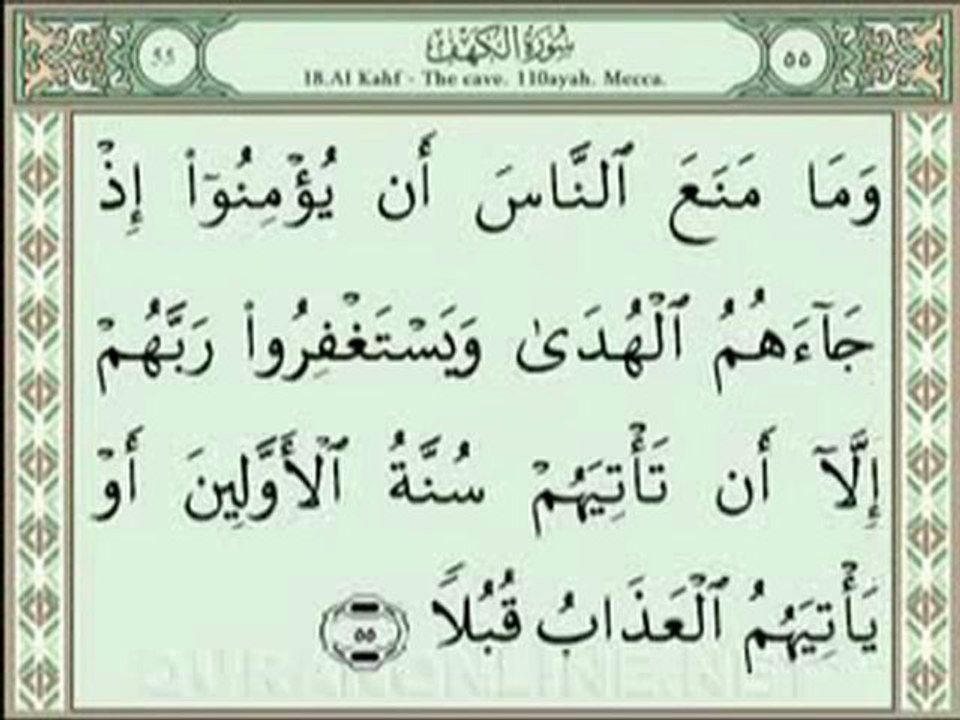 55
سُورَةُ الكَهْفِ
٥٥
18.Al Kahf - The cave. 110ayah. Mecca.
وَمَا مَنَعَ ٱلنَّاسَ أَن يُؤْمِنُوٓا۟ إِذْ
جَآءَهُمُ ٱلْهُدَىٰ وَيَسْتَغْفِرُوا۟ رَبَّهُمْ
إِلَّآ أَن تَأْتِيَهُمْ سُنَّةُ ٱلْأَوَّلِينَ أَوْ
يَأْتِيَهُمُ ٱلْعَذَابُ قُبُلًا ٥٥
QURANONLINE.NET